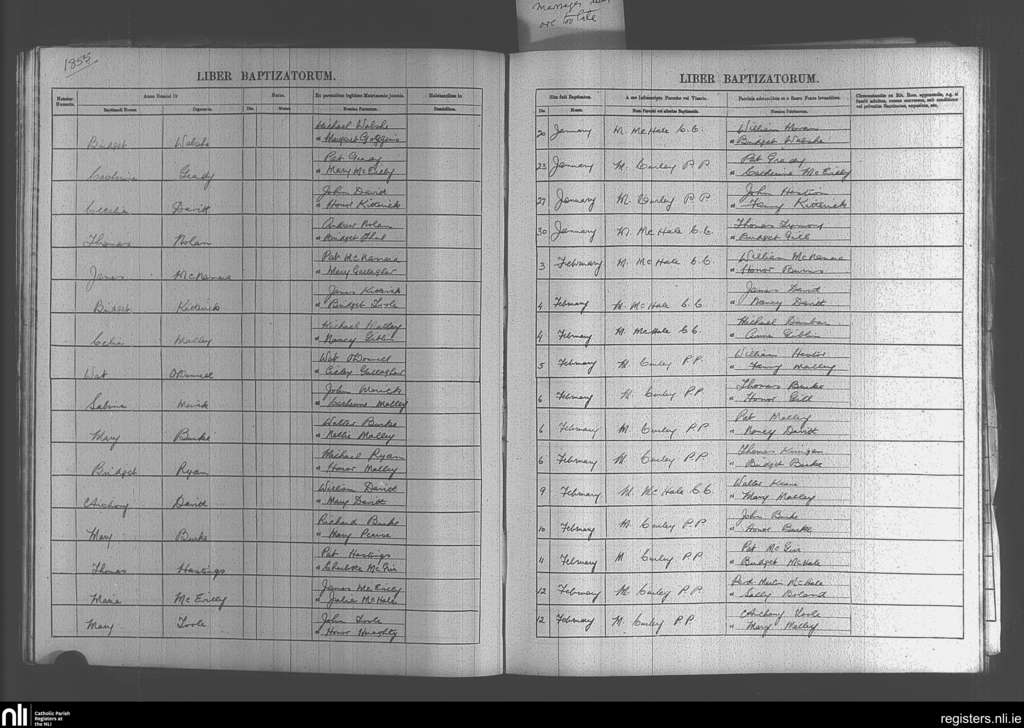 Marriages
1855
LIBER BAPTIZATORUM.
Anno Domini 18
Natus.
Ex parentibus legitimo Matrimonio junctis.
Habitantibus in
Baptizati Nomen
Cognomen.
Die.
Mense
Nomina Parentum.
Domicilium.
Michael Walshe
Bridget Walshe
" Margaret Goggins
Pat Grady
Catherine Grady
" Mary McEvilly
John Davitt
Cecelia Davitt
" Honor Kitterick
Andrew Nolan
Thomas Nolan
" Bridget
Pat McNamara
James McNamara
" Mary Gallagher
James Kitterick
Bridget Kitterick
" Bridget Toole
Michael Malley
Celia Malley
" Nancy Giblin
Wat O'Donnell
Wat O'Donnell
" Cicley Gallagher
John Merrick
Sabina Merrick
" Catherine Malley
Walter Burke
Mary Burke
" Nellie Malley
Michael Ryan
Bridget Ryan
" Honor Malley
William Davitt
Anthony Davitt
" Mary Davitt
Richard Burke
Mary Burke
" Mary Pearse
Pat Hastings
Thomas Hastings
" McGir
James McEvilly
Maria McEvilly
" Julia McHale
John Toole
Mary Toole
" Honor Heraghty
LIBER BAPTIZATORUM.
Die.
Mense.
Nomina Patrinorum.
William Horan
20 January M. McHale C.C.
" Bridget Walshe
Pat Grady
23 January M. Curley P.P.
" Catherine McEvilly
John
27 January M. Curley P.P
" Fanny Kitterick
Thomas
30 January M. McHale C.C.
" Bridget Gill
William McNamara
3 February M. McHale C.C.
" Honor Burns
James Davitt
4 February M. McHale C.C.
" Nancy Davitt
Michael Dunbar
4 February M. McHale C.C.
" Anne Giblin
William
5 February M. Curley P.P.
" Fanny Malley
Thomas Burke
6 February M. Curley P.P.
" Honor Gill
Pat Malley
6 February M. Curley P.P
" Nancy Davitt
Thomas
6 February M. Curley P.P.
" Bridget Burke
Walter Keane
9 February M. McHale C.C.
" Mary Malley
John Burke
10 February M. Curley P.P
" Honor Burke
Pat McGir
11 February M Curley P.P.
" Bridget McHale
McHale
12 February M. Curley P.P.
" Sally Boland
Anthony Toole
12 February M. Curley P.P
" Mary Malley
nli
Catholic Parish
Registers at
the NLI
registers.nli.ie